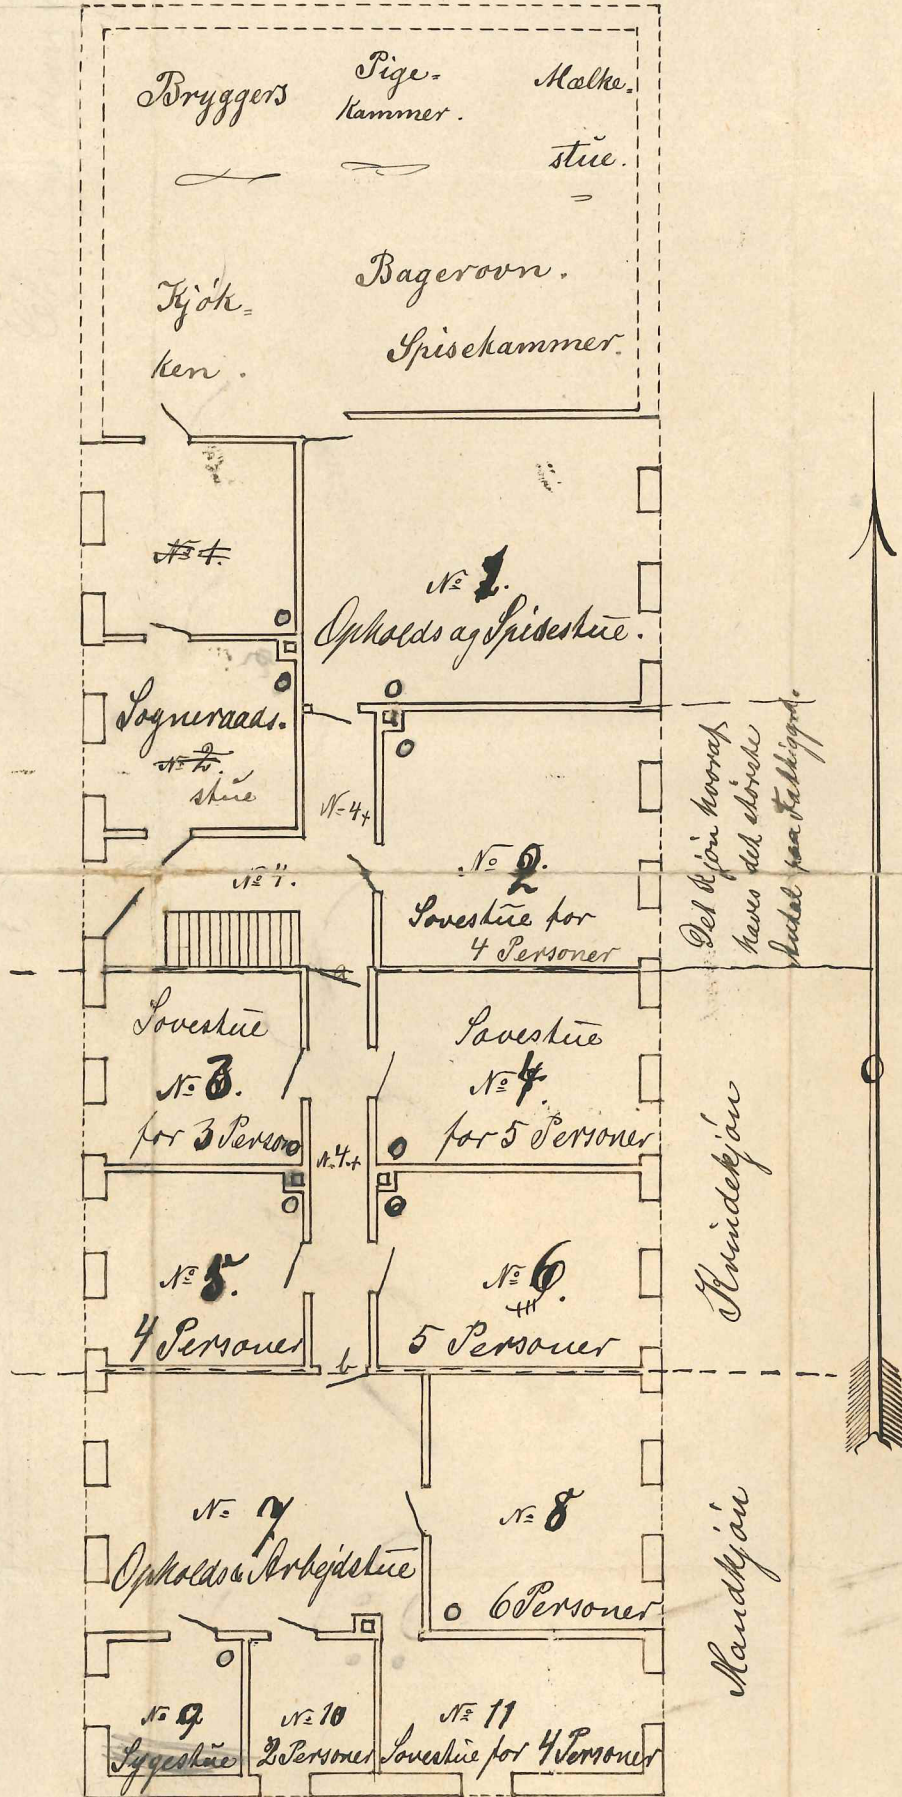 Bryggers
Pige-
Kammer.
Mælke-
stue.
Kjøk-
ken.
Bagerovn.
Spisekammer.
No 1.
No 1.
Opholds og Spisestue.
Sogneraads-
No 2.
stue
No 4+
No 4.
No 2.
Sovestue for
4 Personer
a
Sovestue
No 3.
for 3 Person
Sovestue
No 4.
for 5 Personer
N. 4+
No 5.
4 Personer
No 6.
5 Personer
b
No 7
Opholds & Arbejdstue
No 8
6 Personer
No 9
Sygestue
No 10
2 Personer
No 11
Sovestue for 4 Personer
Det Kjøn hvoraf
haves det største
Antal paa Fattiggrd.
Kvindekjøn
Mandkjøn